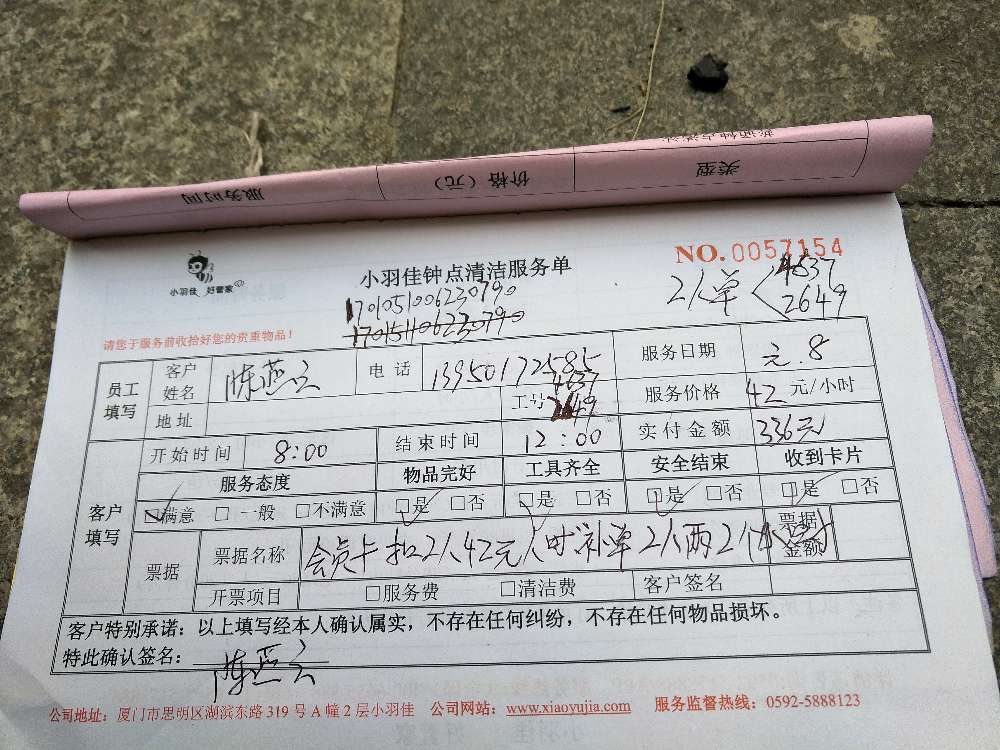 普通钟点清洁
类型 价格（元） 服务时间
小羽佳 好管家
小羽佳钟点清洁服务单
NO.0057154
1701051006230790
2人单 4637
2649
请您于服务前收拾好您的贵重物品！
员工填写 客户姓名 陈燕云 电话 13950172585 服务日期 元.8
地址 工号 4637 2649 服务价格 42 元/小时
客户填写 开始时间 8:00 结束时间 12:00 实付金额 336元
服务态度 物品完好 工具齐全 安全结束 收到卡片
☑满意 □一般 □不满意 ☑是 □否 ☑是 □否 ☑是 □否 ☑是 □否
票据 票据名称 会员卡扣2人42元/人时 单2人两2 票据金额
开票项目 □服务费 □清洁费 客户签名
客户特别承诺：以上填写经本人确认属实，不存在任何纠纷，不存在任何物品损坏。
特此确认签名：陈燕云
公司地址：厦门市思明区湖滨东路319号A幢2层小羽佳 公司网站：www.xiaoyujia.com 服务监督热线：0592-5888123